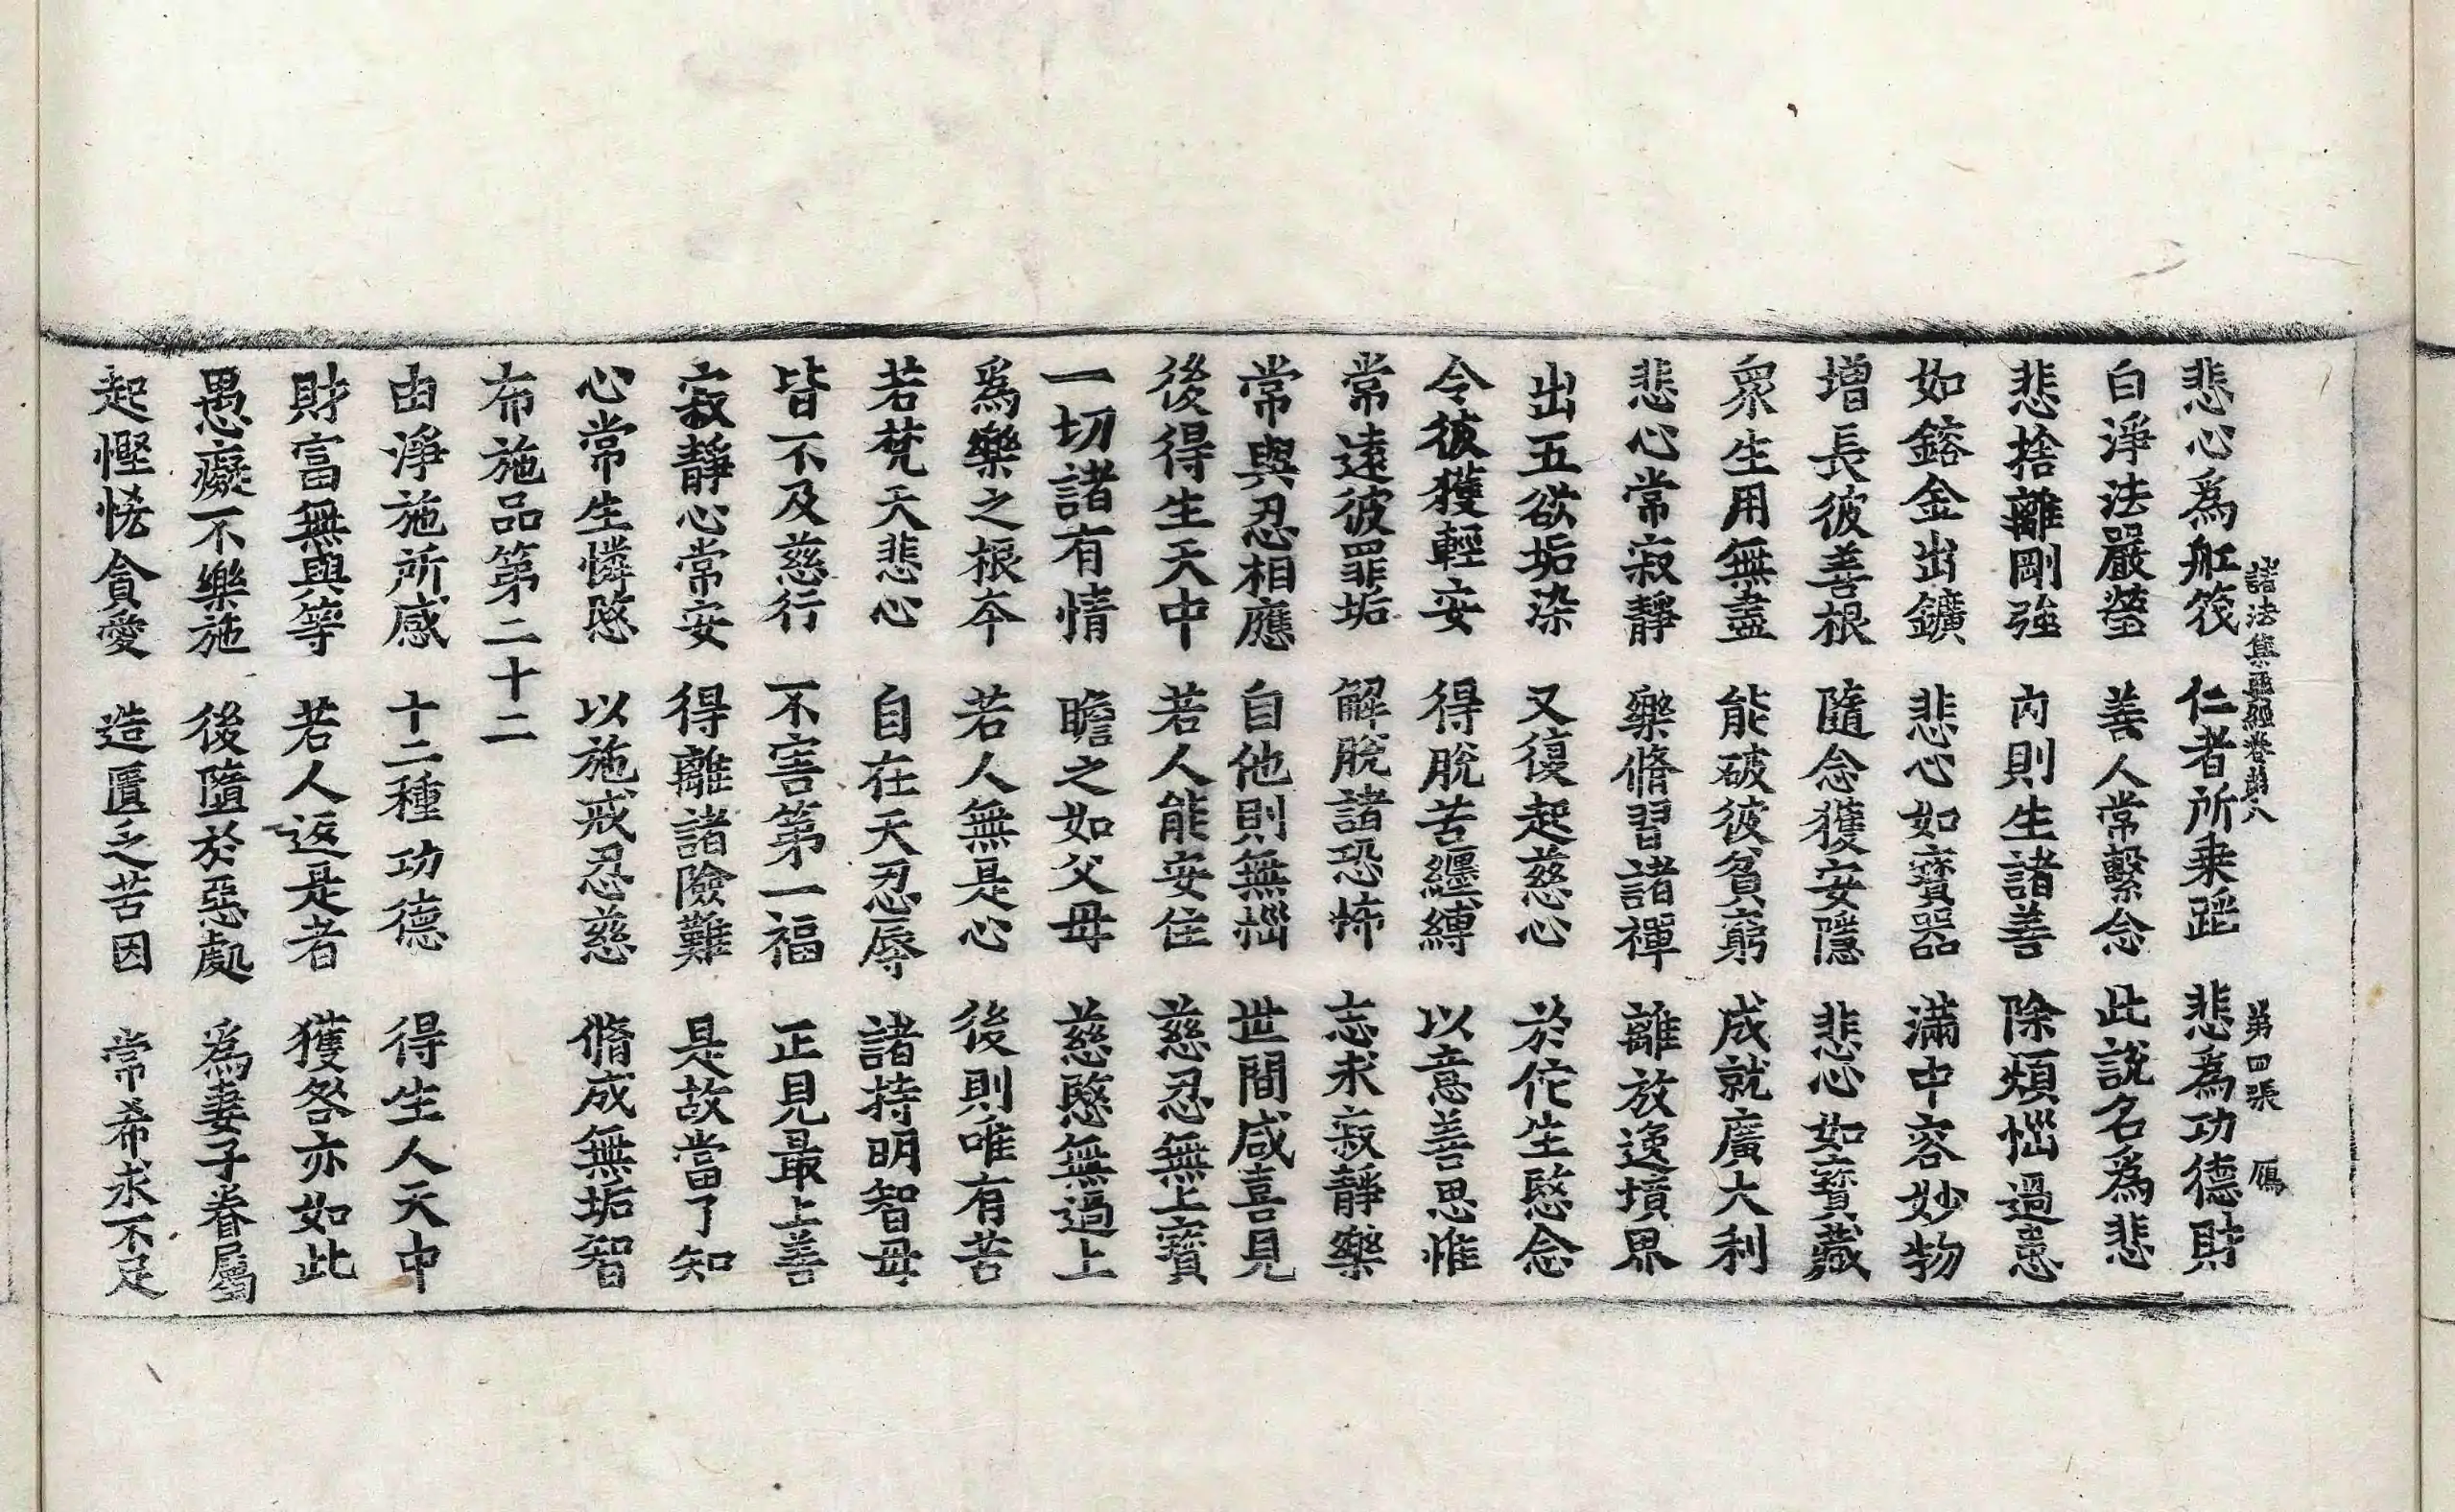 諸法集要經卷第八 第四張 鴈
悲心為舡筏 仁者所乗蹈 悲為功德財
白淨法嚴瑩 善人常繫念 此說名為悲
悲捨離剛強 內則生諸善 除煩惱過患
如鎔金出鑛 悲心如寶器 滿中容妙物
增長彼善根 隨念獲安隱 悲心如寶藏
衆生用無盡 能破彼貧窮 成就廣大利
悲心常寂靜 樂脩習諸禪 離放逸境界
出五欲垢染 又復起慈心 於佗生愍念
令彼獲輕安 得脫苦纏縛 以意善思惟
常遠彼罪垢 解脫諸恐怖 志求寂靜樂
常與忍相應 自他則無惱 世間咸喜見
後得生天中 若人能安住 慈忍無上寶
一切諸有情 瞻之如父母 慈愍無過上
為樂之根本 若人無是心 後則唯有苦
若梵天悲心 自在天忍辱 諸持明智毋
皆不及慈行 不害第一福 正見最上善
寂靜心常安 得離諸險難 是故當了知
心常生憐愍 以施戒忍慈 脩成無垢智
布施品第二十二
由淨施所感 十二種功德 得生人天中
財富無與等 若人返是者 獲咎亦如此
愚癡不樂施 後墮於惡處 為妻子眷屬
起慳悋貪愛 造匱乏苦因 常希求不足